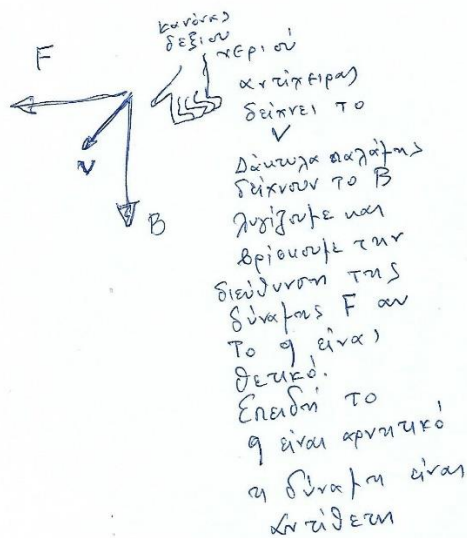 κανόνας
δεξιού
χεριού
F
αντίχειρας
δείχνει το
v
v
Δάκτυλα παλάμης
δείχνουν το B
B
λυγίζουμε και
βρίσκουμε την
διεύθυνση της
δύναμης F αν
το q είναι
θετικό.
Επειδή το
q είναι αρνητικό
η δύναμη είναι
αντίθετη